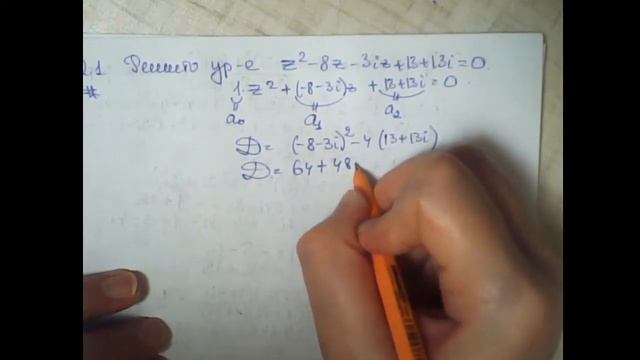 2.1 Решить ур-е z² - 8z - 3iz + 13 + 13i = 0.
# 1·z² + (-8-3i)z + 13+13i = 0.
a₀ a₁ a₂
D = (-8-3i)² - 4(13+13i)
D = 64 + 48